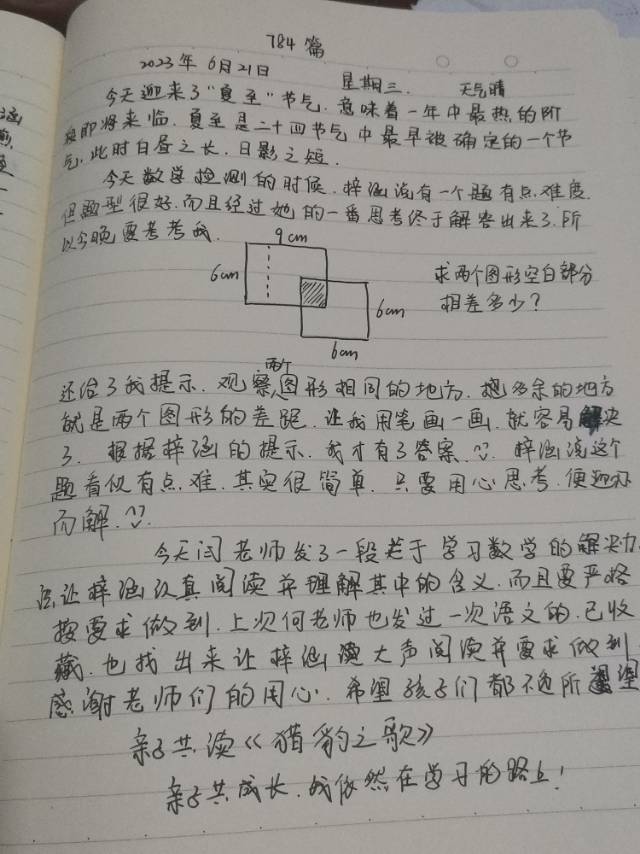 784篇
2023年6月21日 星期三. 天气晴
今天迎来了"夏至"节气.意味着一年中最热的阶
段即将来临.夏至是二十四节气中最早被确定的一个节
气.此时白昼之长.日影之短.
今天数学检测的时候.梓涵说有一个题有点难度.
但题型很好.而且经过她的一番思考终于解答出来了.所
以今晚要考考我.
9cm
6cm
求两个图形空白部分
相差多少?
6cm
6cm
还给了我提示.观察两个图形相同的地方.把多余的地方
就是两个图形的差距.让我用笔画一画.就容易解决
了.根据梓涵的提示.我才有了答案.梓涵说这个
题看似有点难.其实很简单.只要用心思考.便迎刃
而解.
今天闫老师发了一段关于学习数学的解决力.
让梓涵认真阅读并理解其中的含义.而且要严格
按要求做到.上次何老师也发过一次语文的.已收
藏.也找出来让梓涵大声阅读并要求做到.
感谢老师们的用心.希望孩子们都不负所望
亲子共读《猎豹之歌》
亲子共成长.我依然在学习的路上!